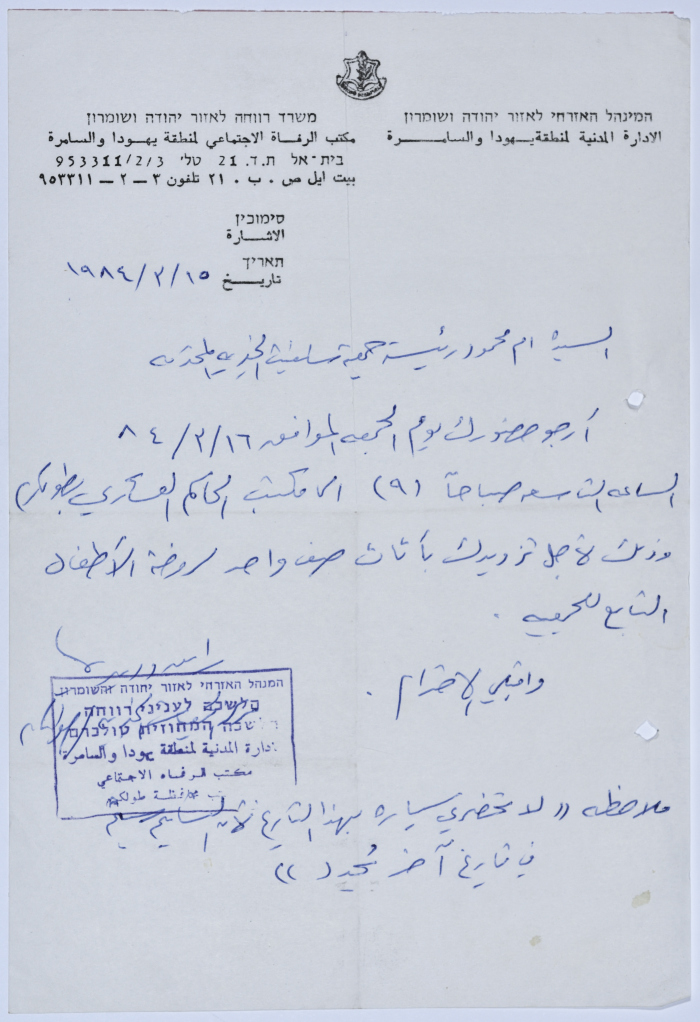 המינהל האזרחי לאזור יהודה ושומרון
الادارة المدنية لمنطقة يهودا والسامرة
משרד רווחה לאזור יהודה ושומרון
مكتب الرفاة الاجتماعي لمنطقة يهودا والسامرة
בית-אל ת.ד. 21 טל' 953311/2/3
بيت ايل ص . ب . ٢١ تلفون ٣ – ٢ – ٩٥٣٣١١
סימוכין
الاشارة
תאריך
تاريخ ١٩٨٤/٣/١٥
السيدة ام محمود رئيسة جمعية سلفيت الخيرية المحترمه
أرجو حضورك يوم الجمعه الموافق ٨٤/٣/١٦
الساعه التاسعه صباحاً (٩) الى مكتب الحاكم العسكري بطولكرم
وذلك لاجل تزويدك بأثاث صف واحد لروضة الأطفال
التابع للجمعيه .
واقبلي الاحترام .
המנהל האזרחי לאזור יהודה והשומרון
הלשכה לעניני רווחה
הלשכה המחוזית טולכרם
ادارة المدنية لمنطقة يهودا والسامرة
مكتب الرفاه الاجتماعي
محافظة طولكرم
ملاحظه (( لا تحضري سياره بهذا التاريخ لأن التسليم سيتم
في تاريخ آخر يحدد ))